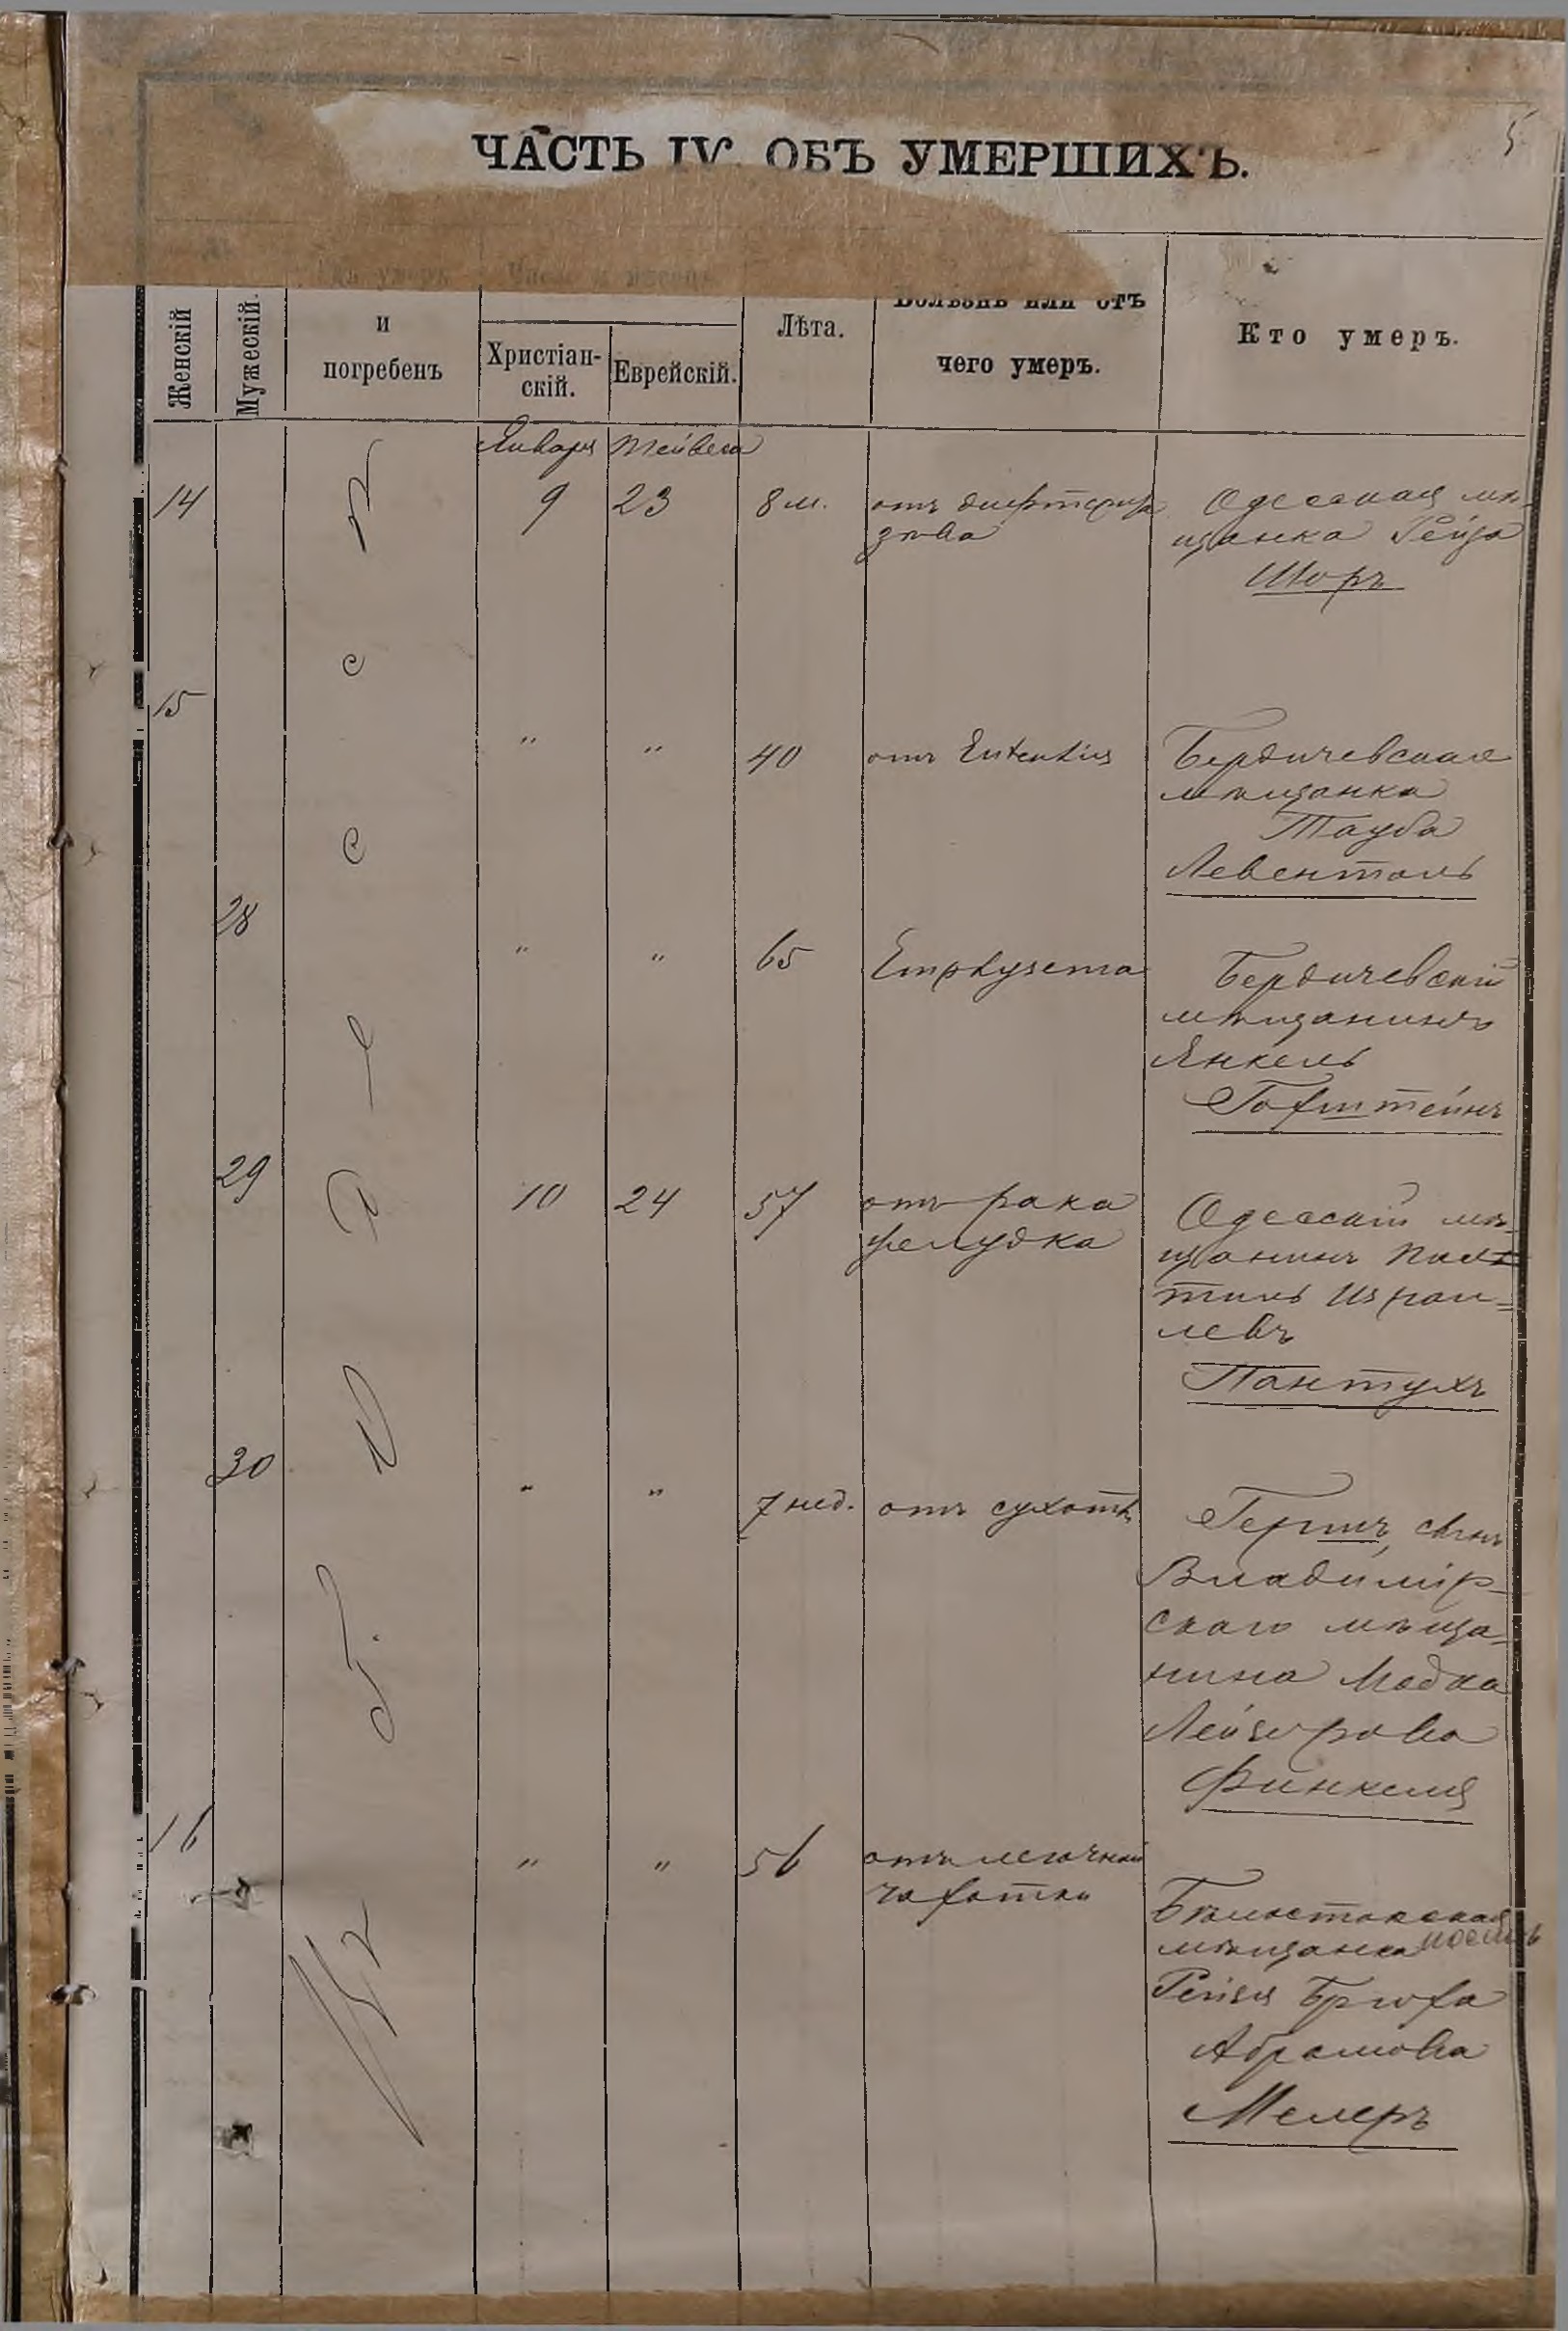 5
ЧАСТЬ IV. ОБЪ УМЕРШИХЪ.
Женскій
Мужескій.
и
погребенъ
Христіан-
скій.
Еврейскій.
Лѣта.
Болѣзнь или отъ
чего умеръ.
Кто умеръ.
Января Тейвеса
14 9 23 8 м. отъ дифтерич. Одесская мѣ-
зѣва щанка Рейза
Шоръ
15
" " 40 отъ Бердичевская
мѣщанка
Тауба
Левенталь
28
" " 65 Emphysema Бердичевскій
мѣщанинъ
Янкель
Гофштейнъ
29 10 24 57 отъ рака Одесскій мѣ-
желудка щанинъ
Израи-
левъ
Пантухъ
30
" " 7 нед. отъ сухотъ Гершъ, сынъ
Владимір-
скаго мѣща-
нина Мошка
Лейзерова
Финкеля
16
" " 56 отъ легочной
чахотки Бѣлостокская
мѣщанка
Рейзя Брюха
Абрамова
Мелеръ
Одесса